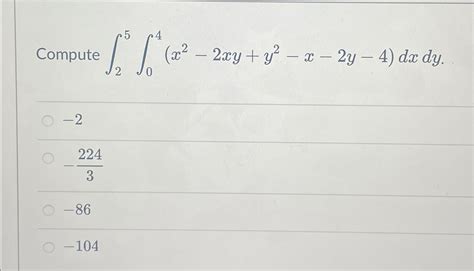 Compute ∫_2^5 ∫_0^4 (x² − 2xy + y² − x − 2y − 4) dx dy.
−2
−224/3
−86
−104